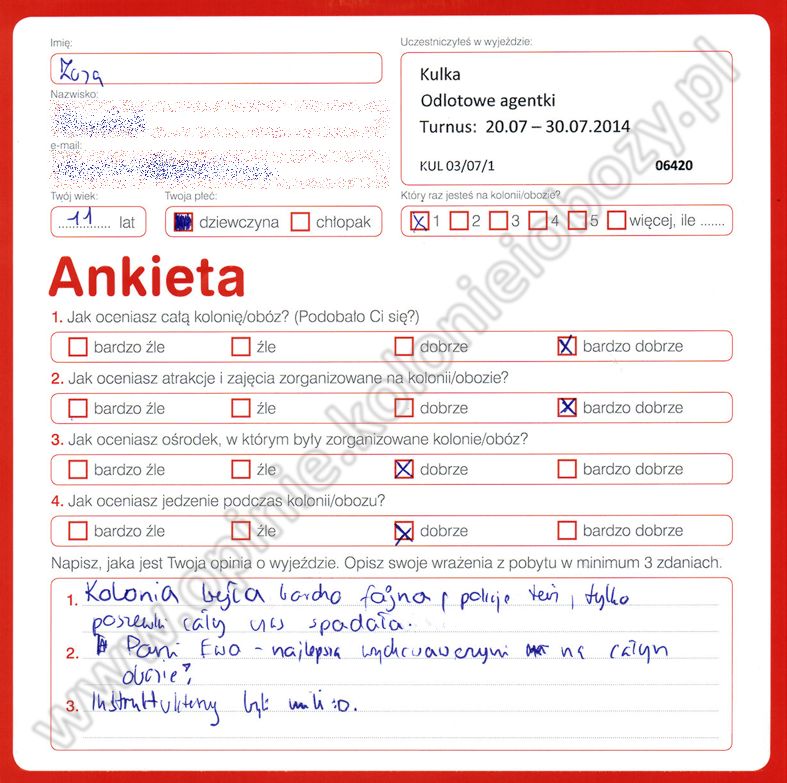 Imię:
Zuza
Nazwisko:
e-mail:
Uczestniczyłeś w wyjeździe:
Kulka
Odlotowe agentki
Turnus: 20.07 – 30.07.2014
KUL 03/07/1 06420
Twój wiek:
11 lat
Twoja płeć:
dziewczyna chłopak
Który raz jesteś na kolonii/obozie?
X 1 2 3 4 5 więcej, ile .......
Ankieta
1. Jak oceniasz całą kolonię/obóz? (Podobało Ci się?)
bardzo źle źle dobrze X bardzo dobrze
2. Jak oceniasz atrakcje i zajęcia zorganizowane na kolonii/obozie?
bardzo źle źle dobrze X bardzo dobrze
3. Jak oceniasz ośrodek, w którym były zorganizowane kolonie/obóz?
bardzo źle źle X dobrze bardzo dobrze
4. Jak oceniasz jedzenie podczas kolonii/obozu?
bardzo źle źle X dobrze bardzo dobrze
Napisz, jaka jest Twoja opinia o wyjeździe. Opisz swoje wrażenia z pobytu w minimum 3 zdaniach.
1. Kolonia była bardzo fajna, pokoje też, tylko
cały czas spadała.
2. Pani Ewa - najlepsza na całym
obozie!
3. byli mili :D.
www.opinie.kolonieiobozy.pl